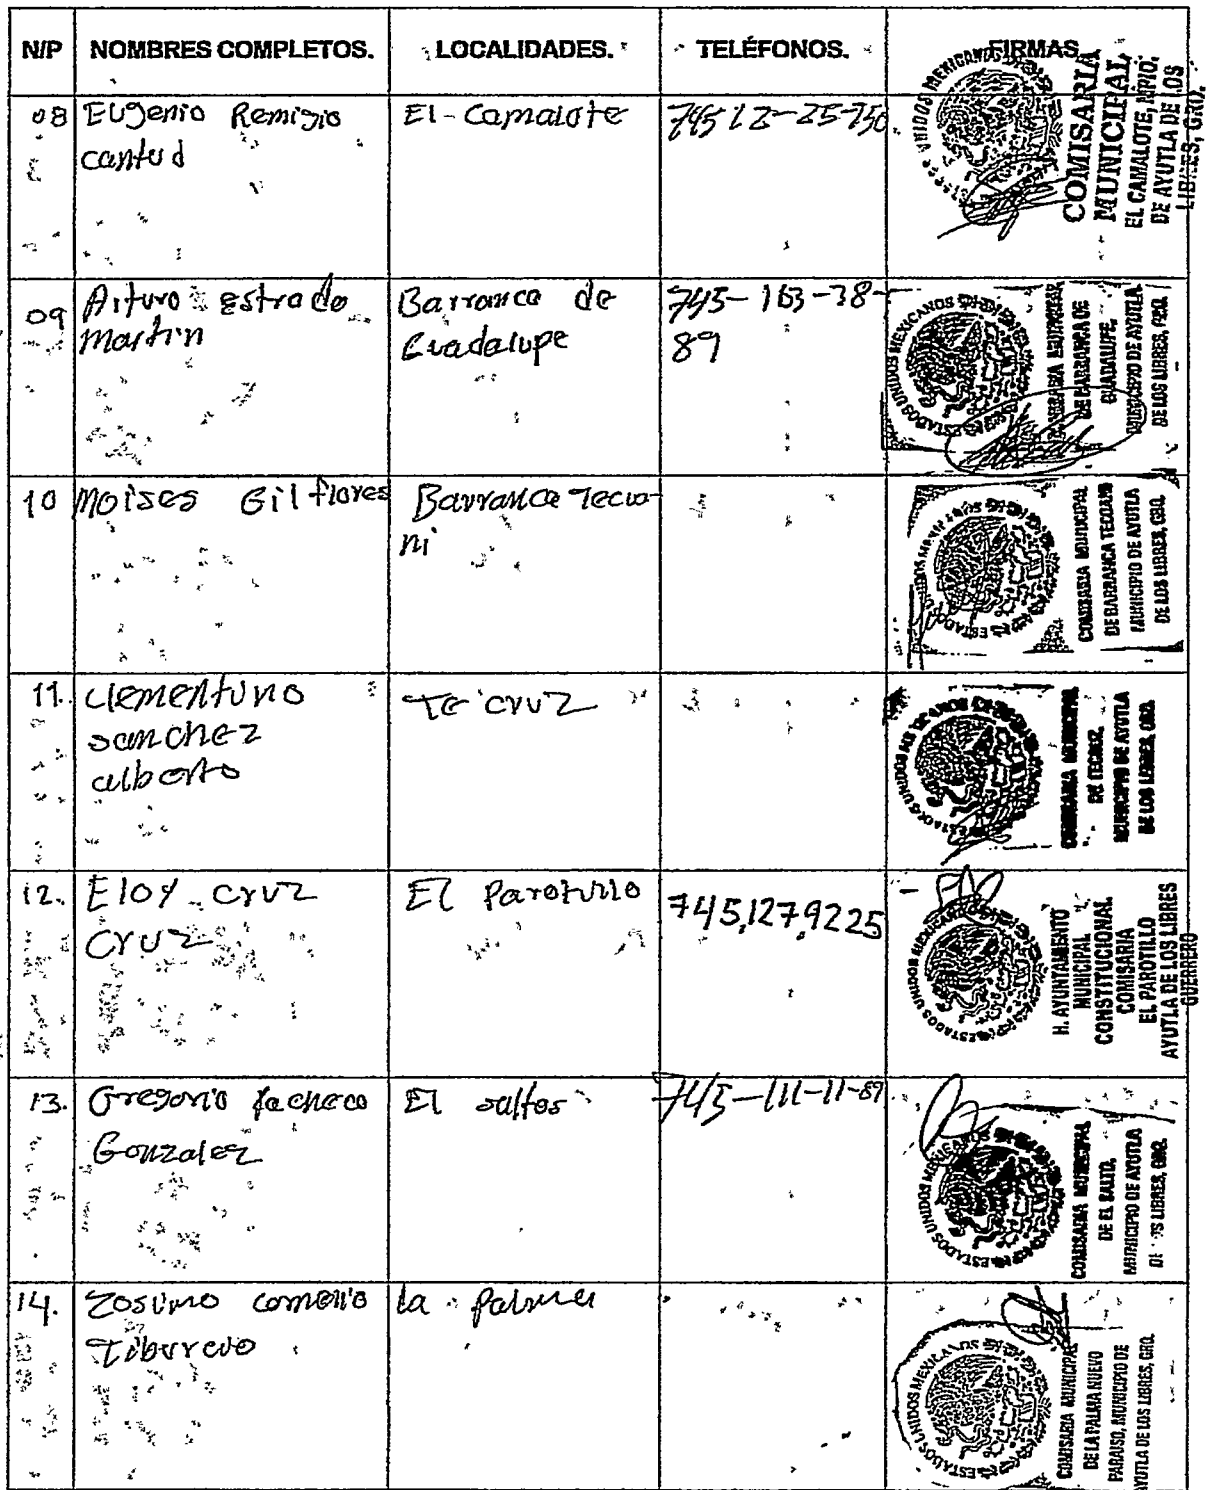 N/P NOMBRES COMPLETOS. LOCALIDADES. TELÉFONOS. FIRMAS.
08 Eugenio Remigio El-Camalote 745 12-25-750
cantud
UNIDOS MEXICANOS
COMISARIA
MUNICIPAL
EL CAMALOTE, MPIO.
DE AYUTLA DE LOS
LIBRES, GRO.
09 Arturo estrada Barranca de 745-163-38-
martin Guadalupe 89
ESTADOS UNIDOS MEXICANOS
COMISARIA MUNICIPAL
DE BARRANCA DE
GUADALUPE,
MUNICIPIO DE AYUTLA
DE LOS LIBRES, GRO.
10 moises Gil flores Barranca Tecua-
ni
ESTADOS UNIDOS MEXICANOS
COMISARIA MUNICIPAL
DE BARRANCA TECUANI
MUNICIPIO DE AYUTLA
DE LOS LIBRES, GRO.
11. clementuno Te cruz
sanchez
alberto
ESTADOS UNIDOS MEXICANOS
COMISARIA MUNICIPAL
DE TECRUZ,
MUNICIPIO DE AYUTLA
DE LOS LIBRES, GRO.
12. Eloy cruz El Parotillo 745,127,9225
cruz
ESTADOS UNIDOS MEXICANOS
H. AYUNTAMIENTO
MUNICIPAL
CONSTITUCIONAL
COMISARIA
EL PAROTILLO
AYUTLA DE LOS LIBRES
GUERRERO
13. Gregorio Pacheco El saltos 745-111-11-89
Gonzalez
ESTADOS UNIDOS MEXICANOS
COMISARIA MUNICIPAL
DE EL SALTO,
MUNICIPIO DE AYUTLA
DE LOS LIBRES, GRO.
14. Zosimo comelio la palma
Tiburcio
ESTADOS UNIDOS MEXICANOS
COMISARIA MUNICIPAL
DE LA PALMA NUEVO
PARAISO, MUNICIPIO DE
AYUTLA DE LOS LIBRES, GRO.